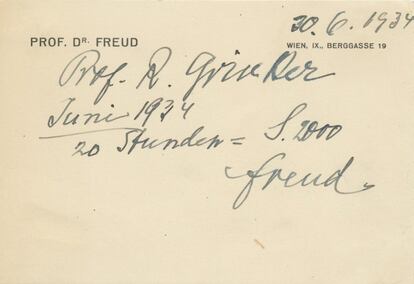 30.6.1934
PROF. DR. FREUD
WIEN, IX., BERGGASSE 19
Prof. R. Grinker
Juni 1934
20 Stunden = S. 2000
Freud